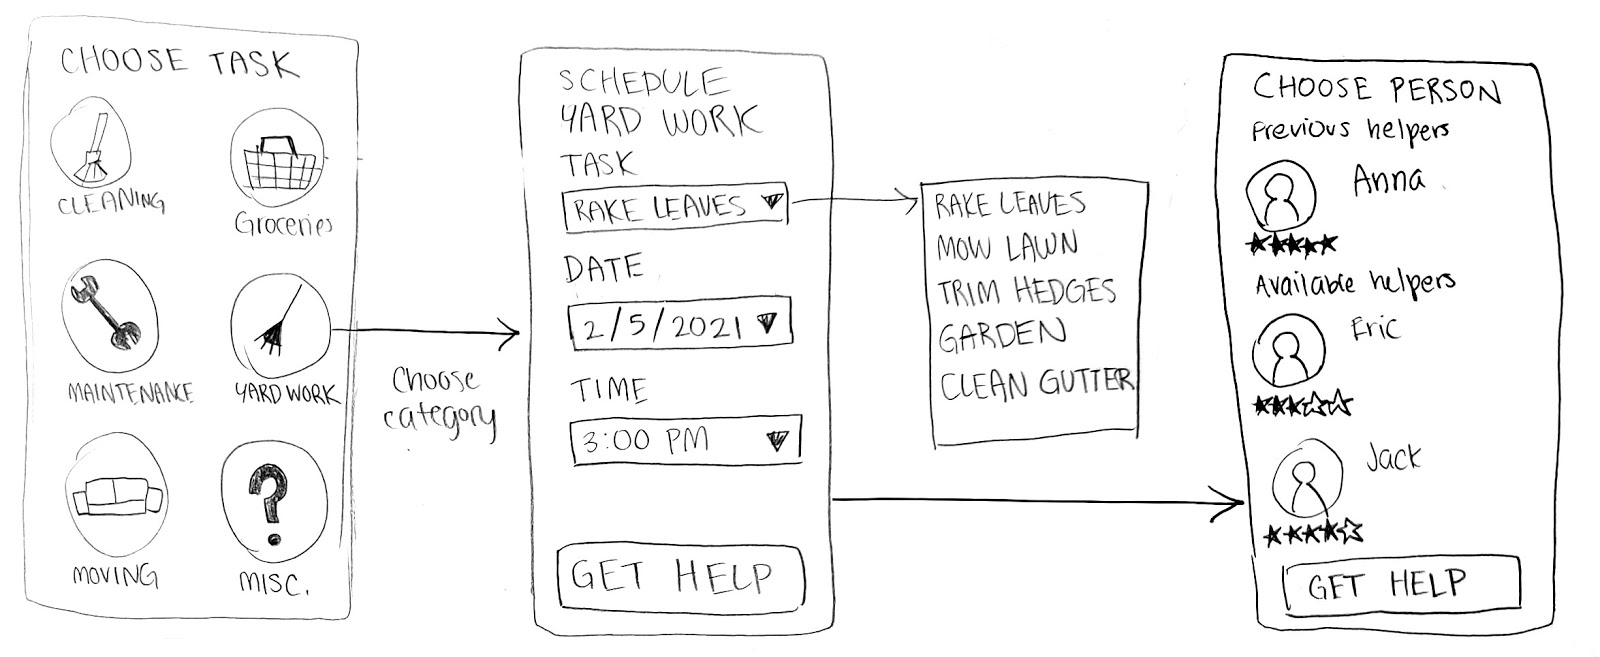 CHOOSE TASK
CLEANING
Groceries
MAINTENANCE
YARD WORK
MOVING
MISC.
Choose
category
SCHEDULE
YARD WORK
TASK
RAKE LEAVES
DATE
2/5/2021
TIME
3:00 PM
GET HELP
RAKE LEAVES
MOW LAWN
TRIM HEDGES
GARDEN
CLEAN GUTTER
CHOOSE PERSON
Previous helpers
Anna
Available helpers
Eric
Jack
GET HELP